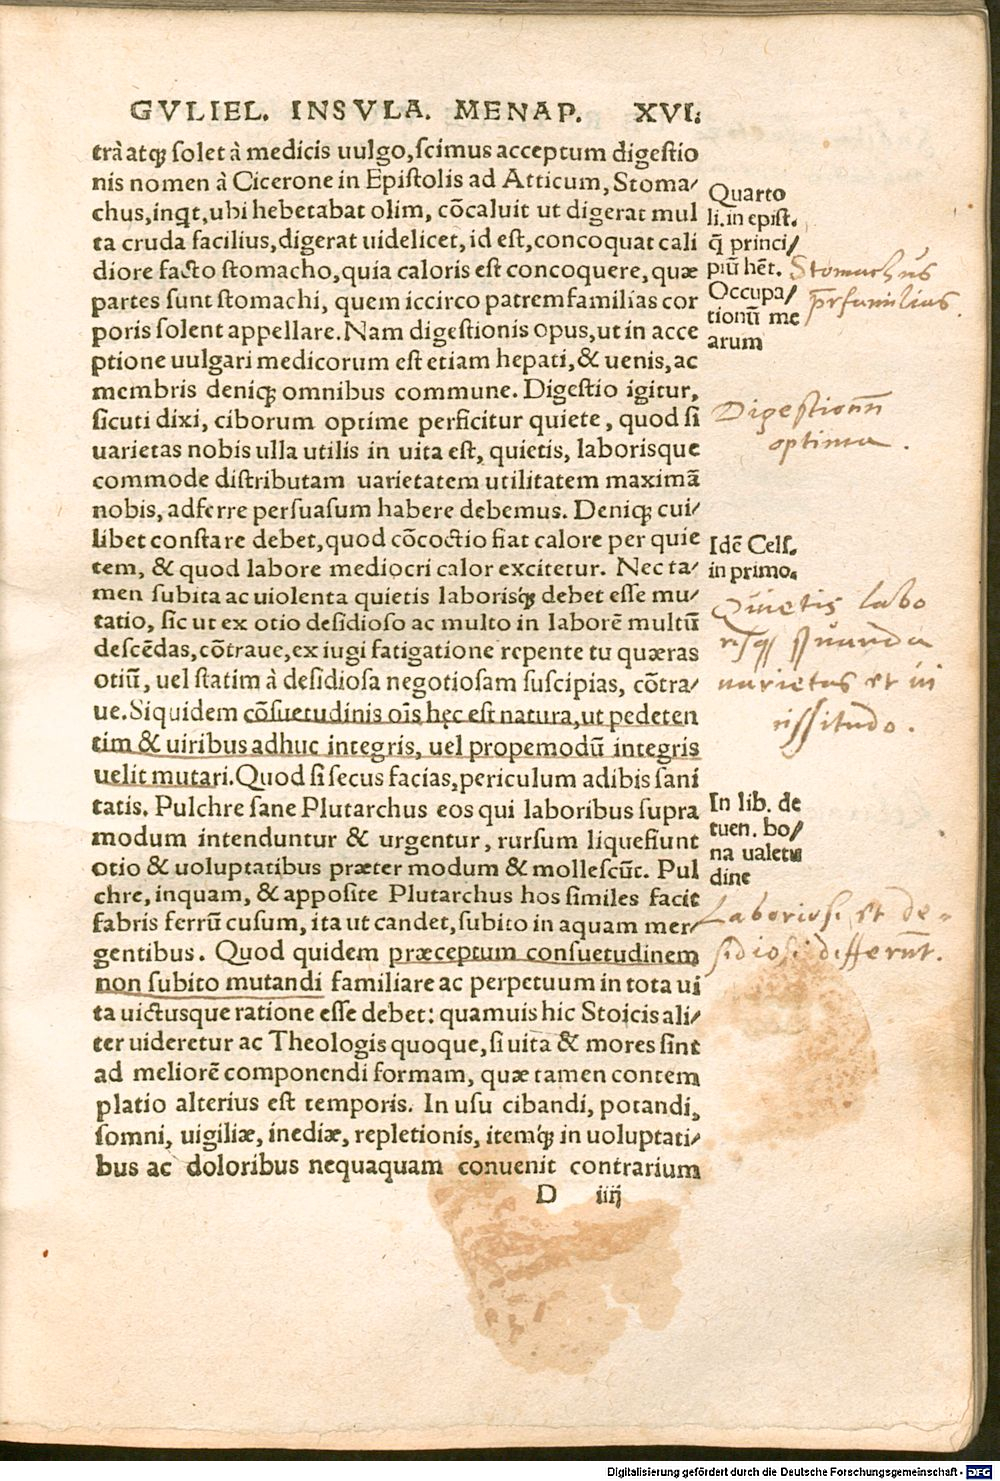 GVLIEL. INSVLA. MENAP. XVI.
trà atq́; solet à medicis uulgo, scimus acceptum digestio
nis nomen à Cicerone in Epistolis ad Atticum, Stoma/
chus, inqt, ubi hebetabat olim, cõcaluit ut digerat mul
ta cruda facilius, digerat uidelicet, id est, concoquat cali
diore facto stomacho, quia caloris est concoquere, quæ
partes sunt stomachi, quem iccirco patremfamilias cor
poris solent appellare. Nam digestionis opus, ut in acce
ptione uulgari medicorum est etiam hepati, & uenis, ac
membris deniq́; omnibus commune. Digestio igitur,
sicuti dixi, ciborum optime perficitur quiete, quod si
uarietas nobis ulla utilis in uita est, quietis, laborisque
commode distributam uarietatem utilitatem maximã
nobis, adferre persuasum habere debemus. Deniq́; cui/
libet constare debet, quod cõcoctio fiat calore per quie
tem, & quod labore mediocri calor excitetur. Nec ta/
men subita ac uiolenta quietis laborisq́; debet esse mu/
tatio, sic ut ex otio desidioso ac multo in laborẽ multũ
descẽdas, cõtraue, ex iugi fatigatione repente tu quæras
otiũ, uel statim à desidiosa negotiosam suscipias, cõtra/
ue. Siquidem cõsuetudinis oĩs hęc est natura, ut pedeten
tim & uiribus adhuc integris, uel propemodũ integris
uelit mutari. Quod si secus facias, periculum adibis sani
tatis. Pulchre sane Plutarchus eos qui laboribus supra
modum intenduntur & urgentur, rursum liquefiunt
otio & uoluptatibus præter modum & mollescũt. Pul
chre, inquam, & apposite Plutarchus hos similes facit
fabris ferrũ cusum, ita ut candet, subito in aquam mer/
gentibus. Quod quidem præceptum consuetudinem
non subito mutandi familiare ac perpetuum in tota ui
ta uictusque ratione esse debet: quamuis hic Stoicis ali/
ter uideretur ac Theologis quoque, si uita & mores sint
ad meliorẽ componendi formam, quæ tamen contem
platio alterius est temporis. In usu cibandi, potandi,
somni, uigiliæ, inediæ, repletionis, itemq́; in uoluptati/
bus ac doloribus nequaquam conuenit contrarium
D iiij
Quarto
li. in epist.
q̃ princi/
piũ hẽt.
Occupa/
tionũ me
arum
Stomachus
pr̃familias.
Digestionũ
optima.
Idẽ Cels.
in primo.
Quietis labo
risq́;
uarietas et ui
cissitudo.
In lib. de
tuen. bo/
na ualetu
dine
Laboriosi et de-
sidiosi differũt.
Digitalisierung gefördert durch die Deutsche Forschungsgemeinschaft - DFG